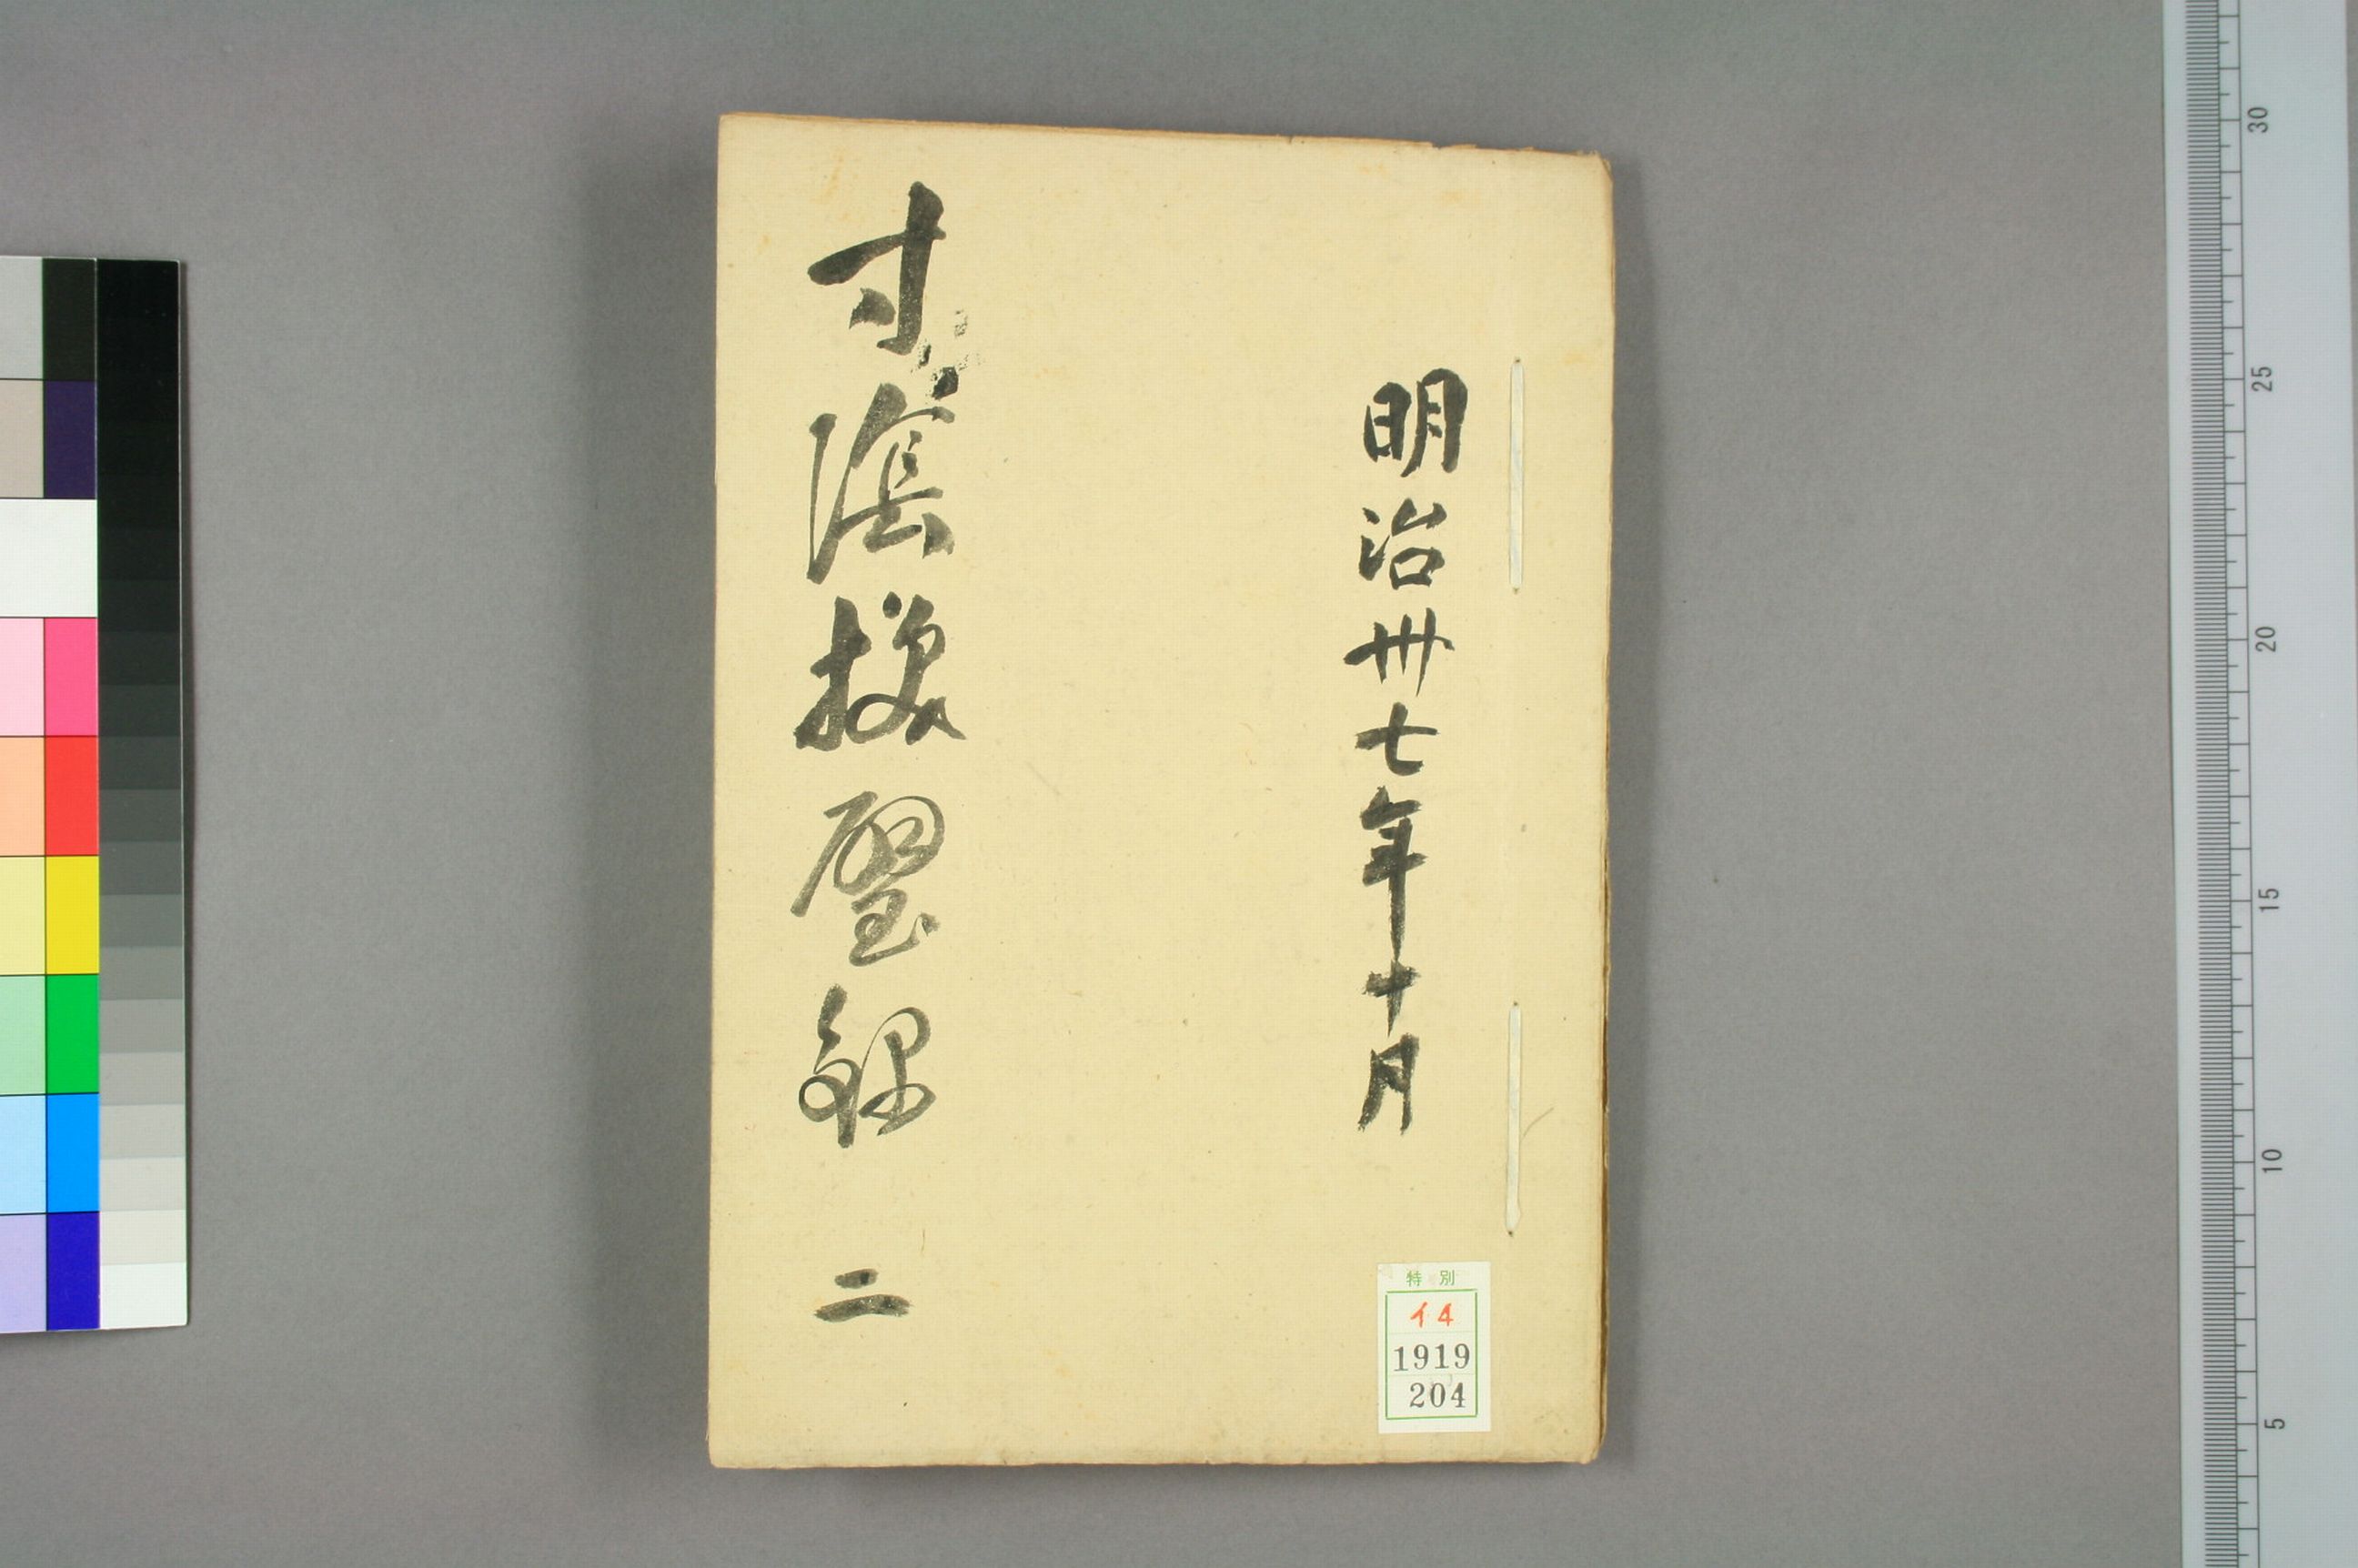 明治卅七年十月
寸陰換璧録 二
特別
イ4
1919
204
30
25
20
15
10
5